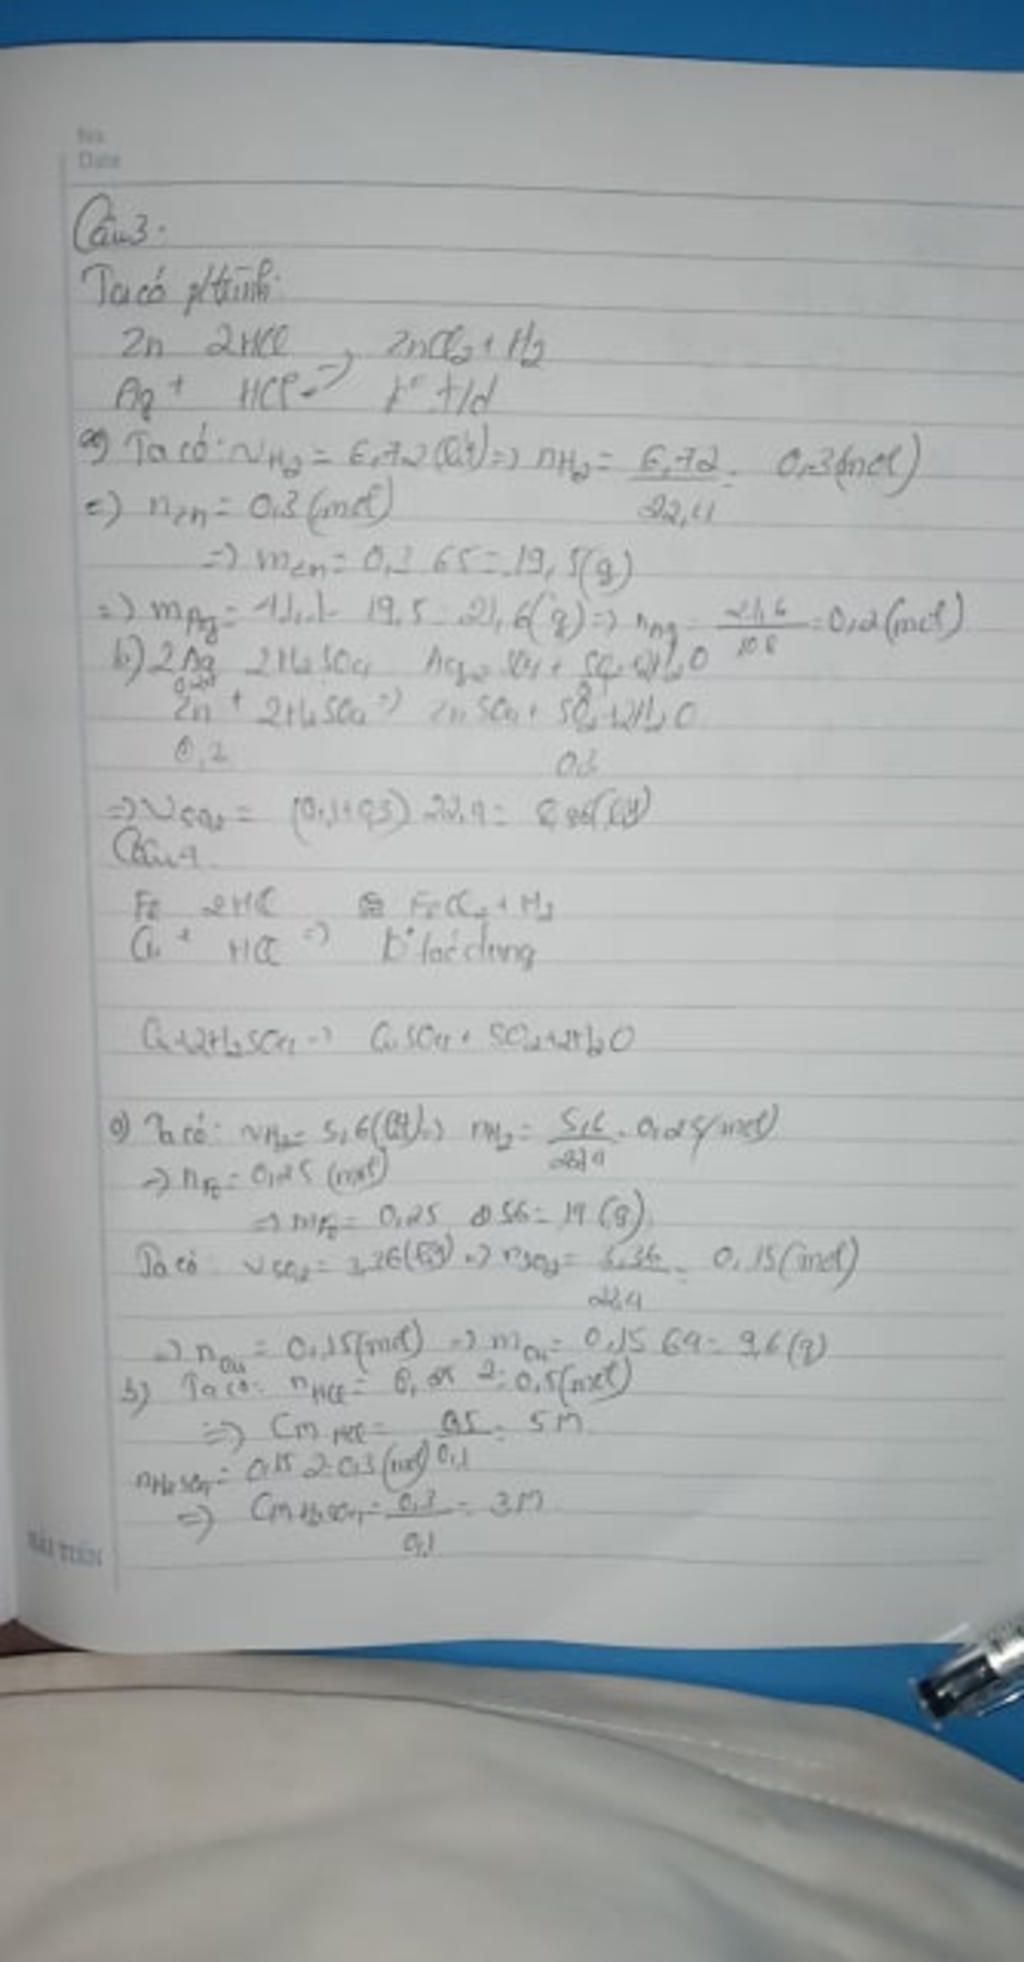 No.
Date
Câu 3:
Ta có ptrình:
Zn 2HCl ZnCl2 + H2
Ag + HCl => k° t/d
a) Ta có: VH2 = 6,72 (lít) => nH2 = 6,72 / 22,4 = 0,3 (mol)
=> nZn = 0,3 (mol)
=> mZn = 0,3 65 = 19,5 (g)
=> mAg = 41,1 - 19,5 = 21,6 (g) => nAg = 21,6 / 108 = 0,2 (mol)
b) 2Ag 2H2SO4 Ag2SO4 + SO2 + 2H2O
Zn + 2H2SO4 => ZnSO4 + SO2 + 2H2O
0,3
=> VSO2 = (0,1+0,3) 22,4 = 8,96 (lít)
Câu 4
Fe 2HCl FeCl2 + H2
Cu + HCl => k° tác dụng
Cu + 2H2SO4 => CuSO4 + SO2 + 2H2O
a) Ta có: VH2 = 5,6 (lít) => nH2 = 5,6 / 22,4 = 0,25 (mol)
=> nFe = 0,25 (mol)
=> mFe = 0,25 56 = 14 (g)
Ta có: VSO2 = 3,36 (lít) => nSO2 = 3,36 / 22,4 = 0,15 (mol)
=> nCu = 0,15 (mol) => mCu = 0,15 64 = 9,6 (g)
b) Ta có: nHCl = 0,25 2 = 0,5 (mol)
=> Cm HCl = 0,5 / 0,1 = 5M
nH2SO4 = 0,15 2 = 0,3 (mol)
=> Cm H2SO4 = 0,3 / 0,1 = 3M
HẢI TIẾN